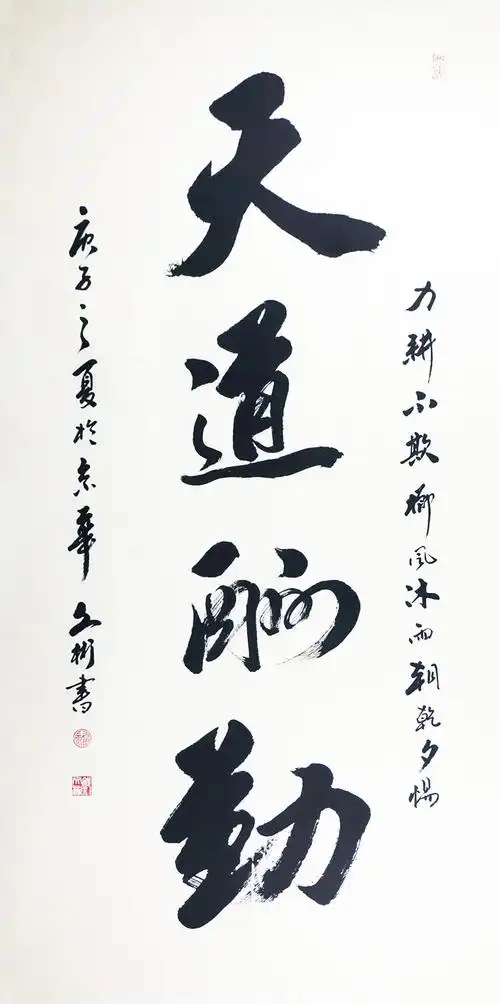 力耕不欺栉风沐雨朝乾夕惕
天道酬勤
庚子之夏於京华文彬書